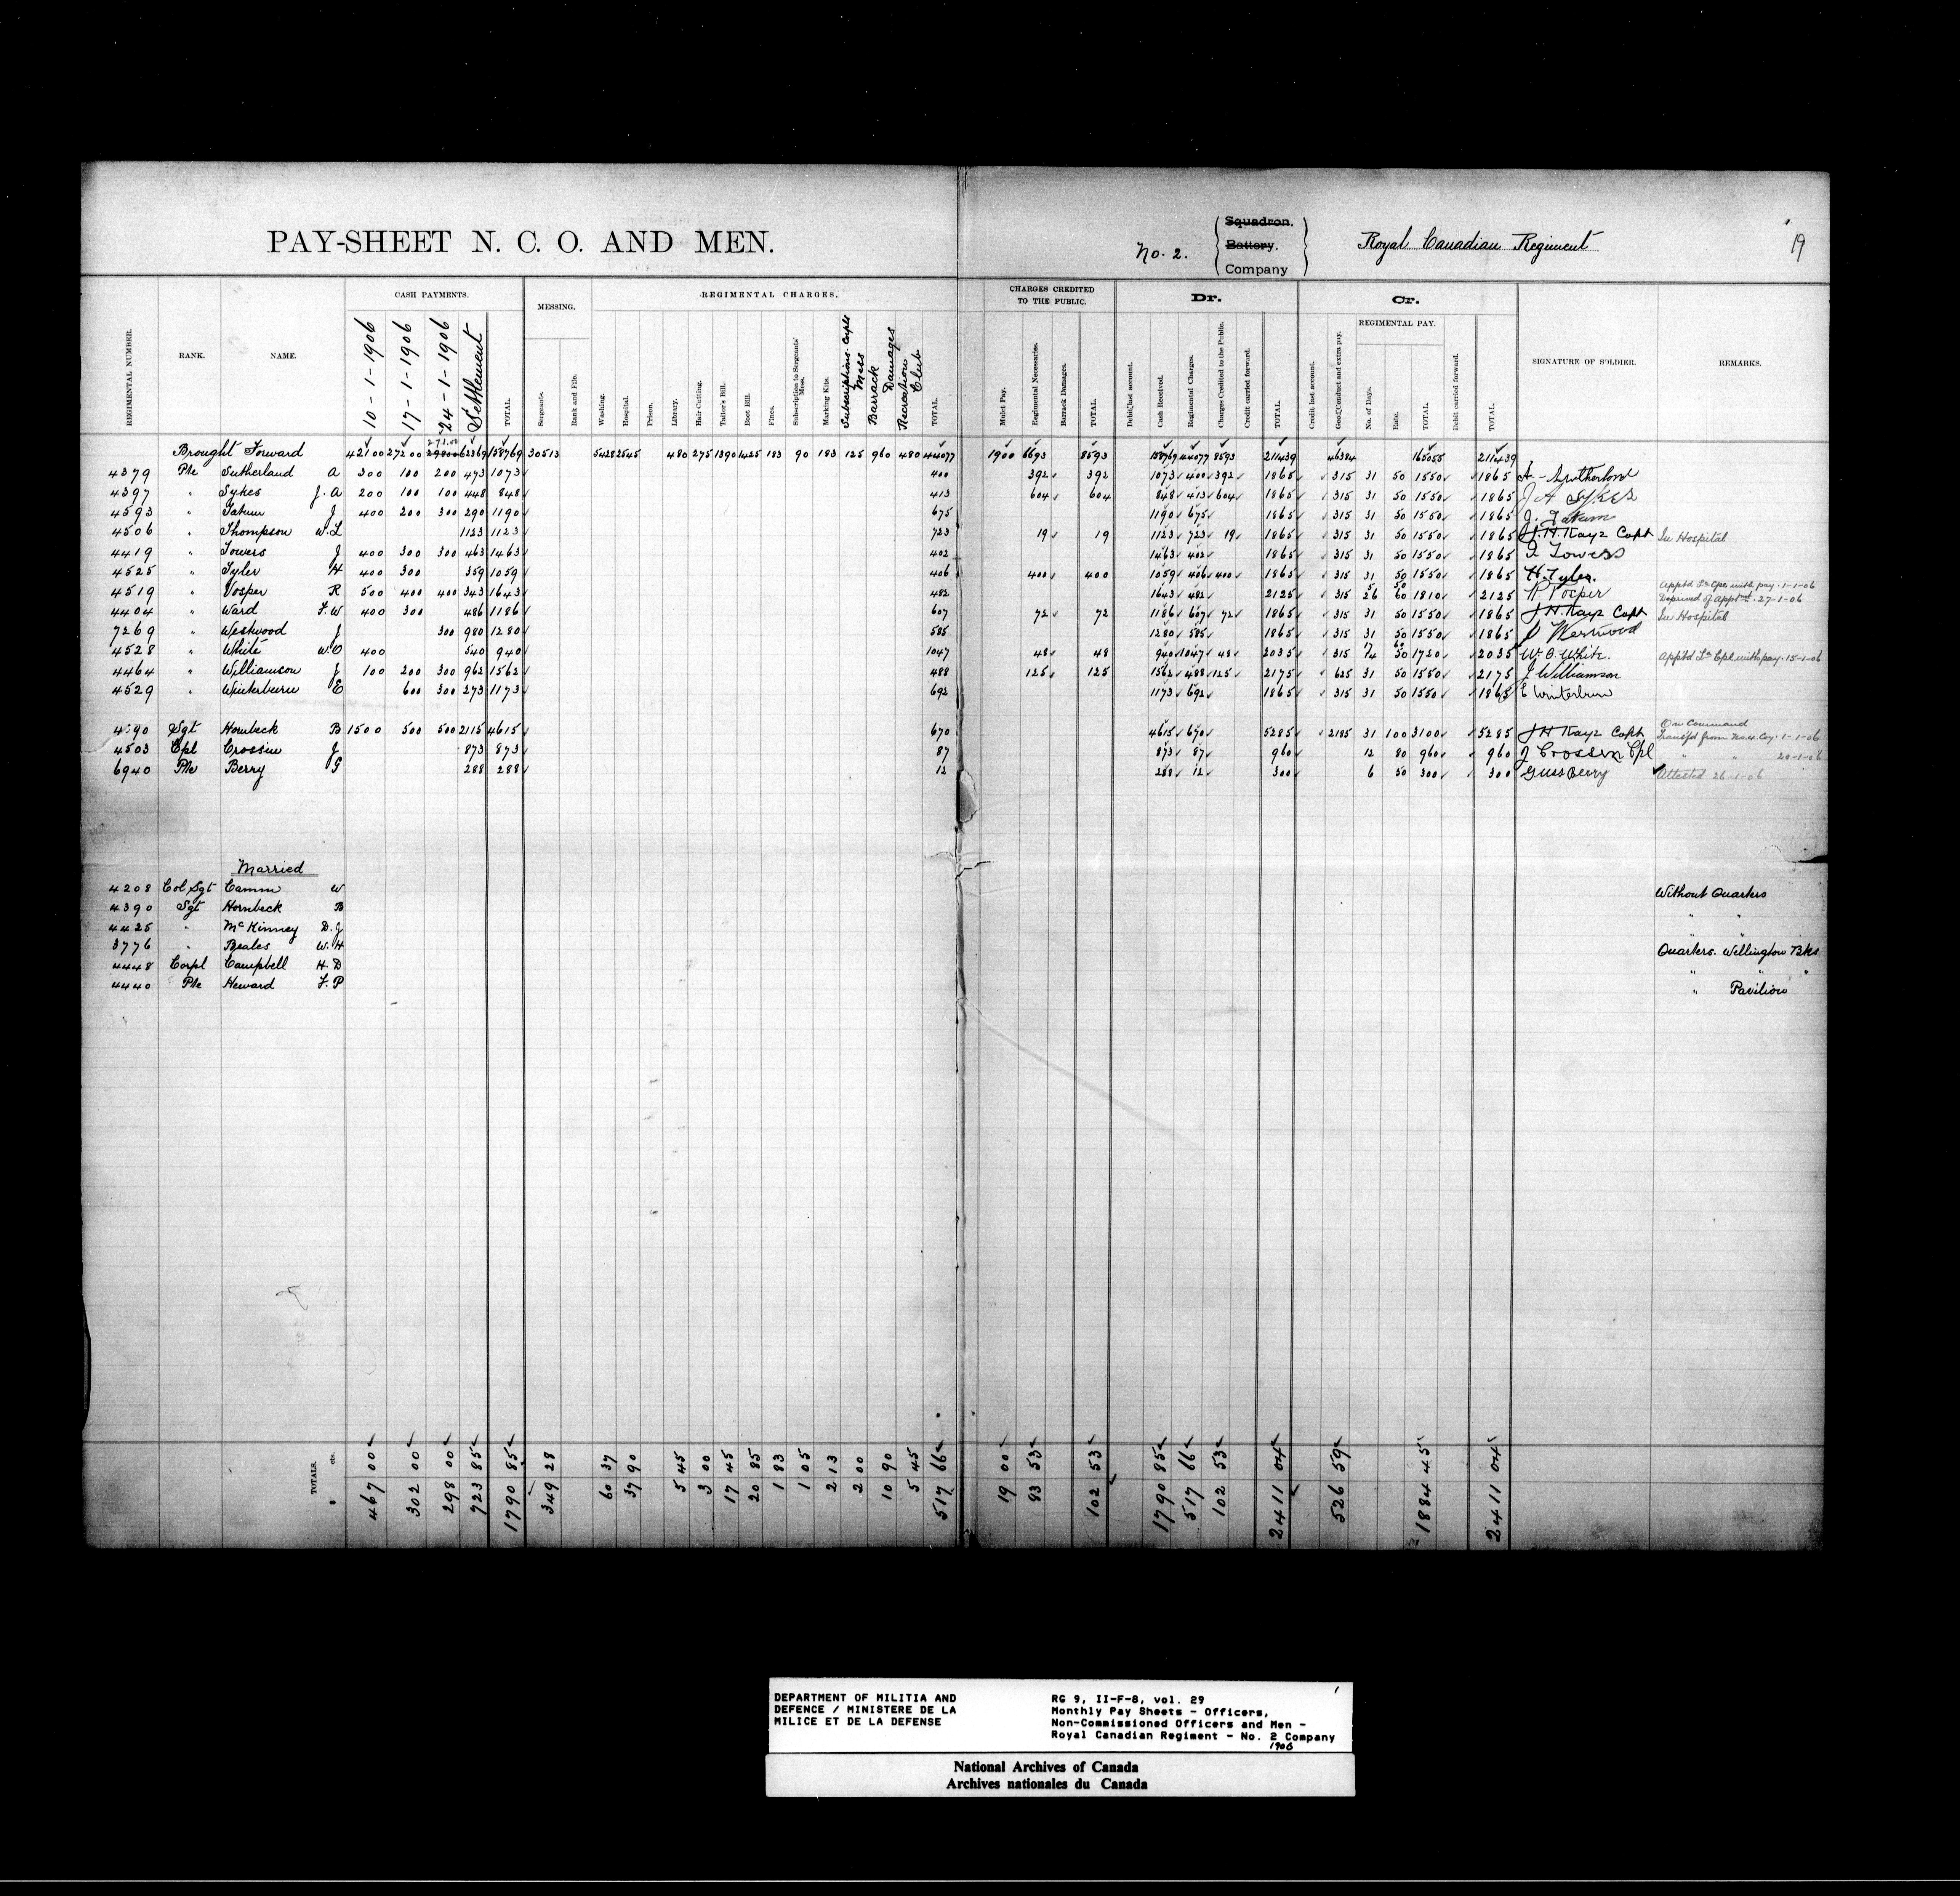 PAY-SHEET N. C. O. AND MEN.
No. 2. Squadron. Battery. Company Royal Canadian Regiment 19
REGIMENTAL NUMBER. RANK. NAME. CASH PAYMENTS. MESSING. REGIMENTAL CHARGES. CHARGES CREDITED TO THE PUBLIC. Dr. Cr. SIGNATURE OF SOLDIER. REMARKS.
REGIMENTAL PAY.
10-1-1906 17-1-1906 24-1-1906 Settlement TOTAL. Sergeants. Rank and File. Washing. Hospital. Prison. Library. Hair-Cutting. Tailor's Bill. Boot Bill. Fines. Subscription to Sergeants' Mess. Marking Kits. Subscriptions. Corpls Mess Barrack Damages Recreation Club TOTAL. Mulct Pay. Regimental Necessaries. Barrack Damages. TOTAL. Debit last account. Cash Received. Regimental Charges. Charges Credited to the Public. Credit carried forward. TOTAL. Credit last account. Good Conduct and extra pay. No. of Days. Rate. TOTAL. Debit carried forward. TOTAL.
271.00
Brought Forward 42100 27200 29800 62369 158769 30513 5428 3545 480 275 1390 1425 183 90 183 125 960 480 44077 1900 6693 8593 158769 44077 8593 211439 46384 165055 211439
4379 Pte Sutherland A 300 100 200 473 1073 400 392 392 1073 400 392 1865 315 31 50 1550 1865 A. Sutherland
4397 " Sykes J. A 200 100 100 448 848 413 604 604 848 413 604 1865 315 31 50 1550 1865 J A Sykes
4593 " Tatum J 400 200 300 290 1190 675 1190 675 1865 315 31 50 1550 1865 J. Tatum
4506 " Thompson W. L 1123 1123 723 19 19 1123 723 19 1865 315 31 50 1550 1865 J. H. Kayz Capt In Hospital
4419 " Towers J 400 300 300 463 1463 402 1463 402 1865 315 31 50 1550 1865 J Towers
4525 " Tyler H 400 300 359 1059 406 400 400 1059 406 400 1865 315 31 50 1550 1865 H. Tyler.
4519 " Vosper R 500 400 400 343 1643 482 1643 482 2125 315 5 26 50 60 1810 2125 R Vosper Apptd Lce Cpl with pay. 1-1-06
Deprived of Apptmt. 27-1-06
4404 " Ward F. W 400 300 486 1186 607 72 72 1186 607 72 1865 315 31 50 1550 1865 J H Kayz Capt In Hospital
7269 " Westwood J 300 980 1280 585 1280 585 1865 315 31 50 1550 1865 J Westwood
4528 " White W. O 400 540 940 1047 48 48 940 1047 48 2035 315 17 14 60 50 1720 2035 W. O. White. Apptd Lce Cpl with pay. 15-1-06
4464 " Williamson J 100 200 300 962 1562 488 125 125 1562 488 125 2175 625 31 50 1550 2175 J Williamson
4529 " Winterburn E 600 300 273 1173 692 1173 692 1865 315 31 50 1550 1865 E Winterburn
4390 Sgt Hornbeck B 1500 500 500 2115 4615 670 4615 670 5285 2185 31 100 3100 5285 J H Kayz Capt On Command
4503 Cpl Crossin J 873 873 87 873 87 960 12 80 960 960 J Crossin Cpl Transfd from No. 4 Coy. 1-1-06
" " 20-1-06
6940 Pte Berry G 288 288 12 288 12 300 6 50 300 300 Guss Berry Attested 26-1-06
Married
4208 Col Sgt Camm W Without Quarters
4390 Sgt Hornbeck B " "
4425 " McKinney D. J " "
3776 " Beales W. H Quarters. Wellington Bks
4448 Corpl Campbell H. D " " "
4440 Pte Heward F. P " Pavilion
TOTALS. $ cts. 467 00 302 00 298 00 723 85 1790 85 349 28 60 37 37 90 5 45 3 00 17 45 20 85 1 83 1 05 2 13 2 00 10 90 5 45 517 66 19 00 83 53 102 53 1790 85 517 66 102 53 2411 04 526 59 1884 45 2411 04
DEPARTMENT OF MILITIA AND
DEFENCE / MINISTERE DE LA
MILICE ET DE LA DEFENSE
RG 9, II-F-8, vol. 29
Monthly Pay Sheets - Officers,
Non-Commissioned Officers and Men -
Royal Canadian Regiment - No. 2 Company
1906
National Archives of Canada
Archives nationales du Canada